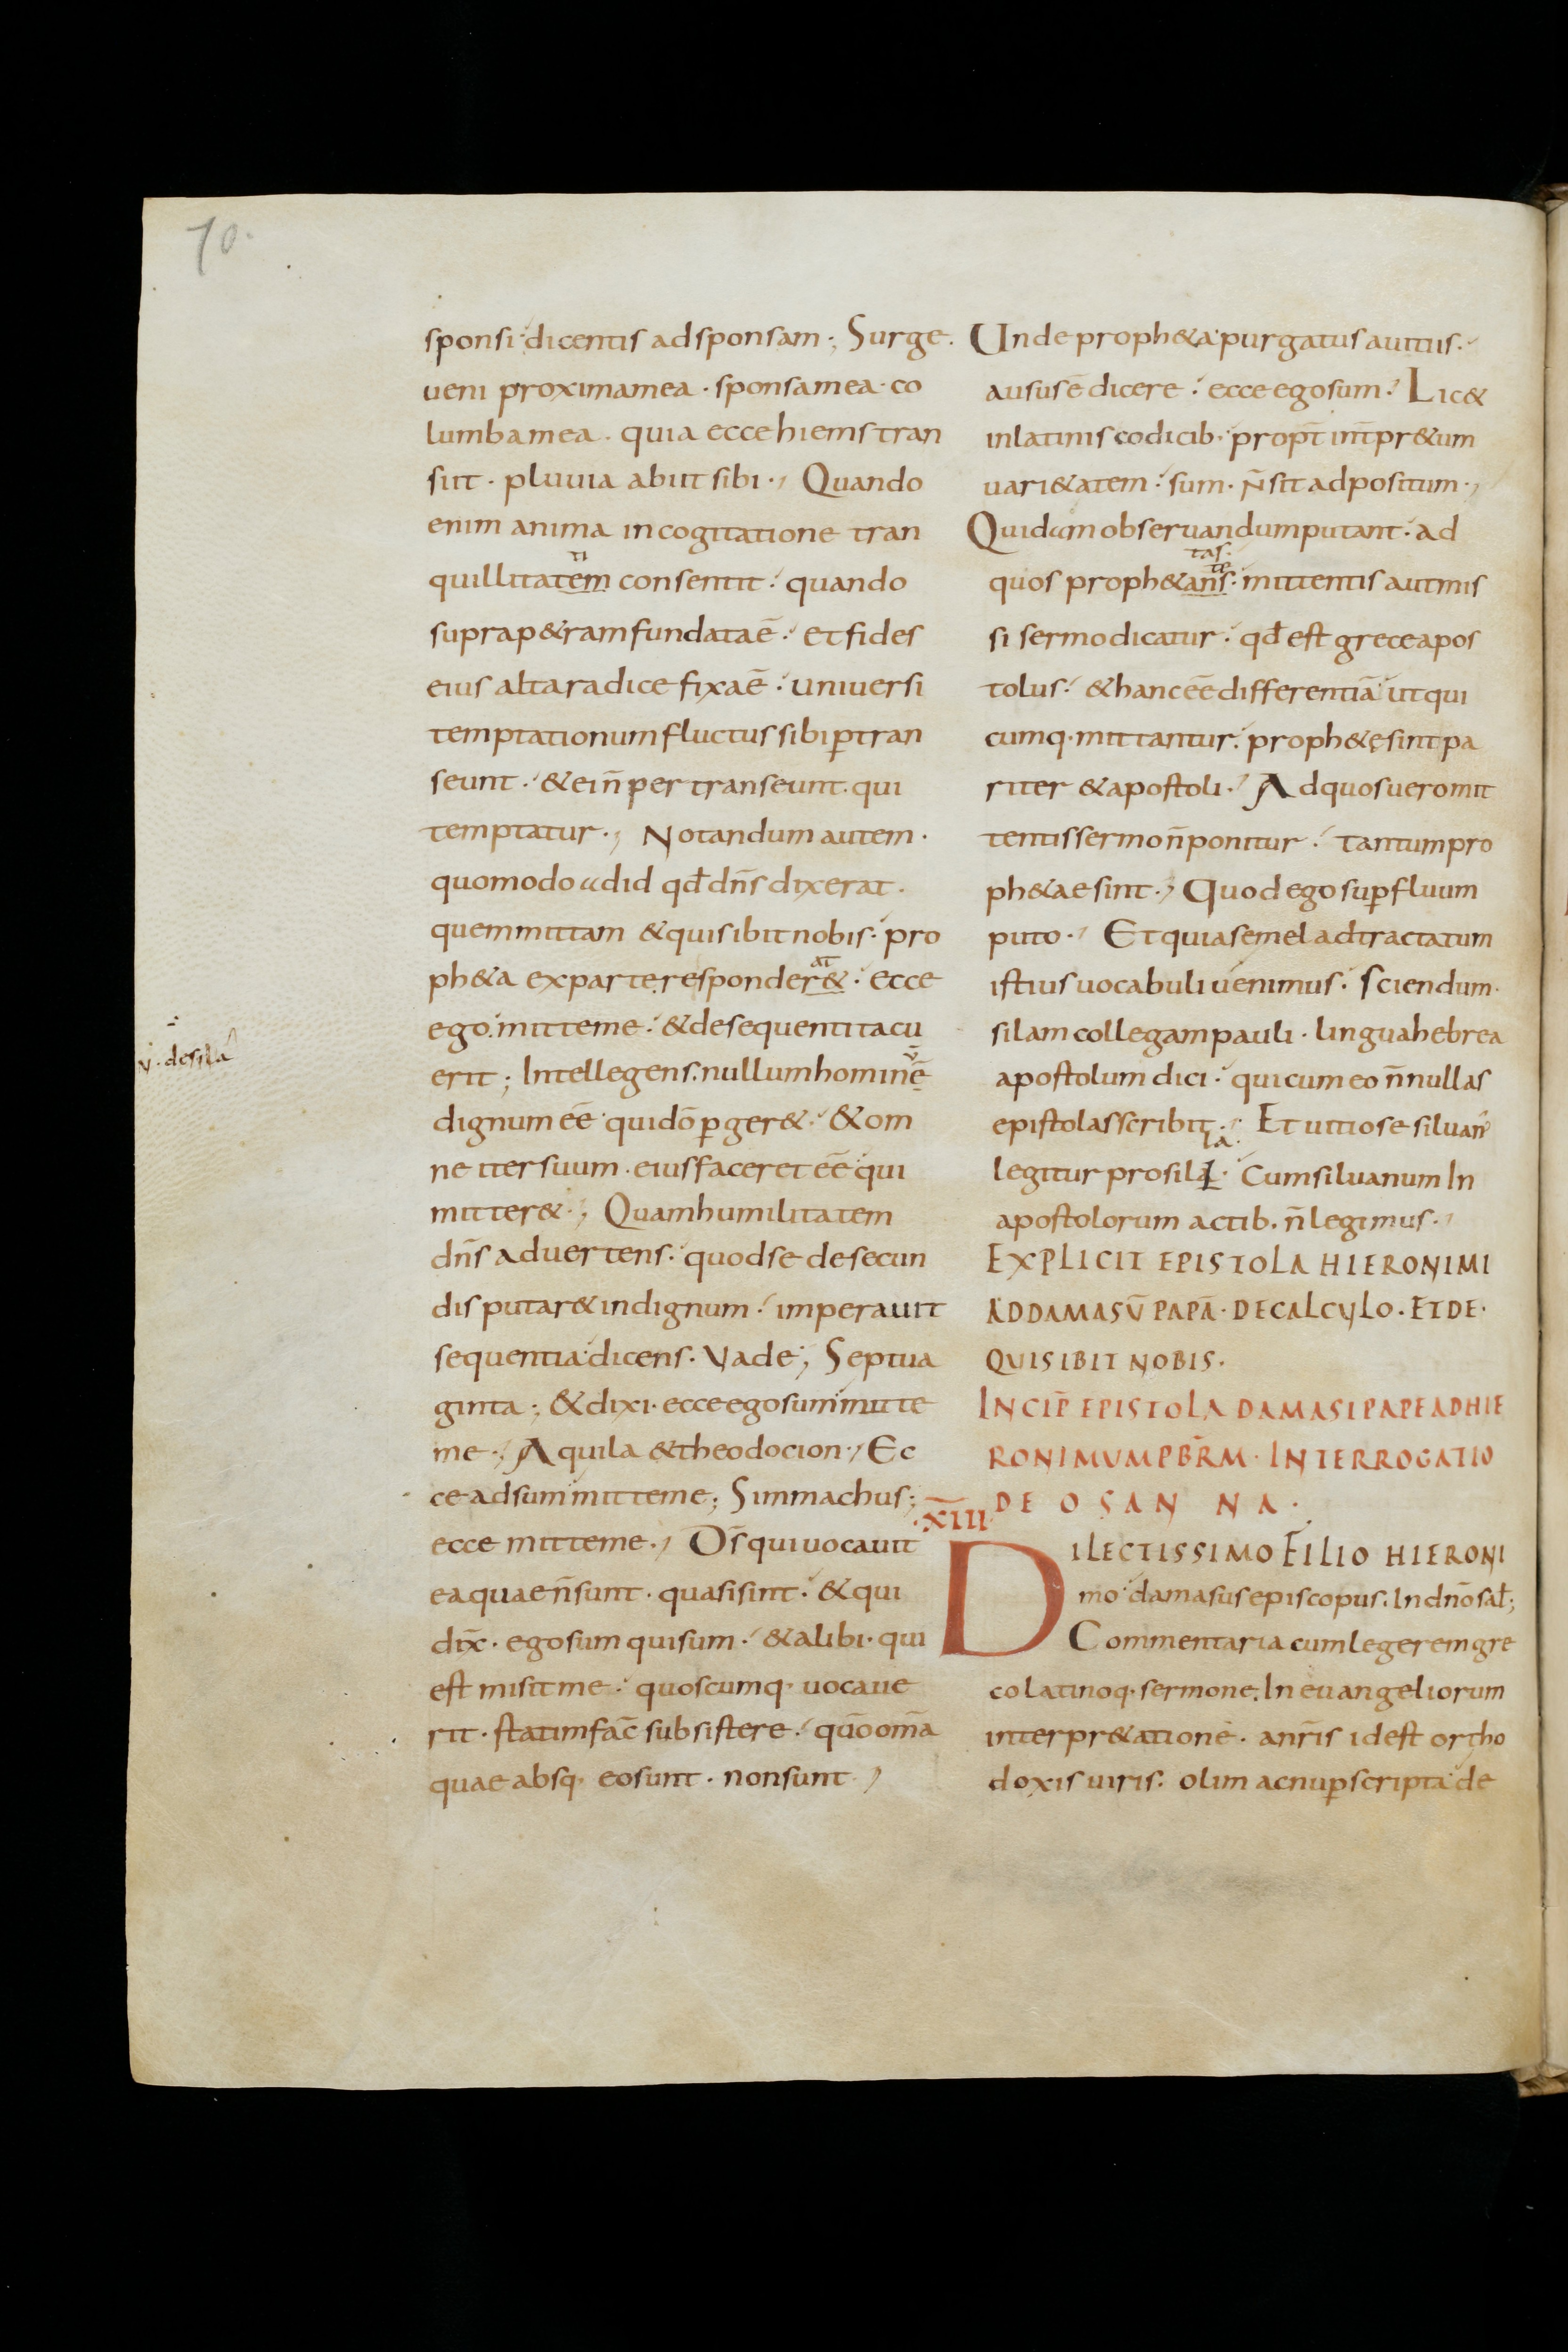 70.
sponsi dicentis ad sponsam ; Surge.
ueni proxima mea · sponsa mea · co
lumba mea · quia ecce hiems tran
siit · pluuia abiit sibi ·, Quando
enim anima in cogitatione tran
ti
quillitatem consentit · quando
supra p&ram fundata ē · et fides
eius alta radice fixa ē · uniuersi
temptationum fluctus sibi ꝑtran
seunt · & ei n̄ per transeunt · qui
temptatur ·, Notandum autem ·
quomodo adid qđ dn̄s dixerat ·
quem mittam & quis ibit nobis · pro
at
ph&a ex parte responder& · ecce
ego mitte me · & de sequenti tacu
v. de sila
erit ; Intellegens · nullum hominē
dignum ēē qui dō ꝑger& · & om
ne iter suum · eius faceret ēē qui
mitter& ·, Quam humilitatem
dn̄s aduertens · quod se de secun
dis putar& indignum · imperauit
sequentia dicens · Vade ·, Septua
ginta ; & dixi · ecce ego sum mitte
me ·, Aquila & theodocion ·, Ec
ce adsum mitte me ; Simmachus ;
ecce mitte me ·, Ds̄ qui uocauit
ea quae n̄ sunt · quasi sint · & qui
dix̄ · ego sum qui sum · & alibi · qui
est misit me · quoscumq· uocaue
rit · statim fac̄ subsistere · quō om̄a
quae absq· eo sunt · non sunt ·,
Unde proph&a purgatus a uitiis ·
ausus ē dicere · ecce ego sum · Lic&
in latinis codicib· propt̄ int̄pr&um
uari&atem · sum · n̄ sit adpositum ·,
Quidam obseruandum putant · ad
tas
te
quos proph&ans · mittentis aut mis
si sermo dicatur · qđ est grece apos
tolus · & hanc ēē differentiā ut qui
cumq· mittantur · proph&ę sint pa
riter & apostoli · Ad quos uero mit
tentis sermo n̄ ponitur · tantum pro
ph&ae sint ·, Quod ego suꝑfluum
puto · Et quia semel ad tractatum
istius uocabuli uenimus · Sciendum ·
silam collegam pauli · lingua hebrea
apostolum dici · qui cum eo n̄ nullas
epistolas scribit · Et uitiose siluan
la
legitur pro sila · Cum siluanum In
apostolorum actib· n̄ legimus ·,
EXPLICIT EPISTOLA HIERONIMI
AD DAMASŪ PAPĀ · DE CALCULO · ET DE ·
QUIS IBIT NOBIS ·
INCIP̄ EPISTOLA DAMASI PAPE AD HIE
RONIMUM PBR̄M · INTERROGATIO
DE OSANNA ·
XIII
DILECTISSIMO FILIO HIERONI
mo damasus episcopus · In dn̄o sal̄ ;
Commentaria cum legerem gre
co latinoq· sermone · In euangeliorum
interpr&atione · a nr̄is id est ortho
doxis uiris · olim ac nuꝑ scripta de